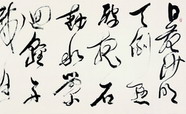 日落沙明
天倒開
波搖石
動水縈
回輕舟